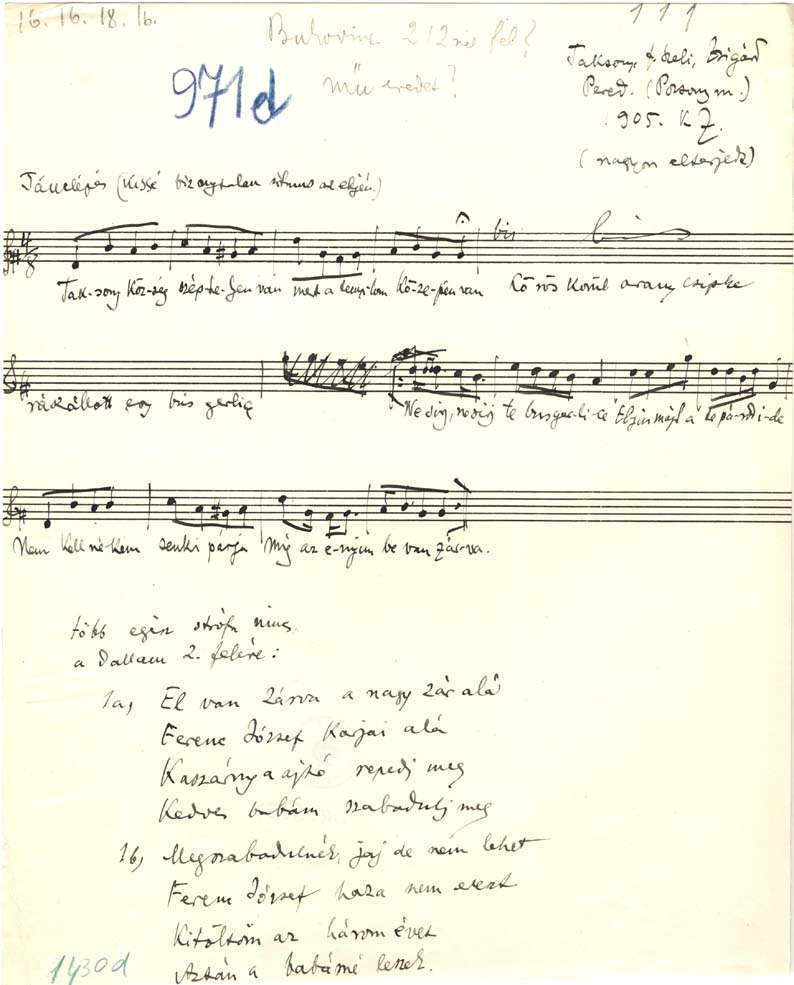 16. 16. 18. 16.
111
Bukovina 212 fél?
Mű eredet?
971d
Taksony, f. Szeli, Zsigárd
Pered. (Pozsony m.)
905. K Z.
(nagyon elterjedt)
Tánclépés (Kissé bizonytalan ritmus az elején.)
bis
Tak-sony köz-ség szép-he-lyen van mert a temp-lom kö-ze-pén van Körös körül arany csipke
rászállott egy bús gerlice
Ne sirj, ne sirj te bus ger-li-ce
Nem kell né-kem senki párja míg az e-nyim be van zár-va.
több egész strófa nincs,
a dallam 2. felére:
1a, El van zárva a nagy zár alá
Ferenc József Karjai alá
Kaszárnya ajtó repedj meg
Kedves babám szabadulj meg
1b, Megszabadulnék, jaj de nem lehet
Ferenc József haza nem ereszt
Kitöltöm az három évet
Aztán a babámé leszek.
1430d